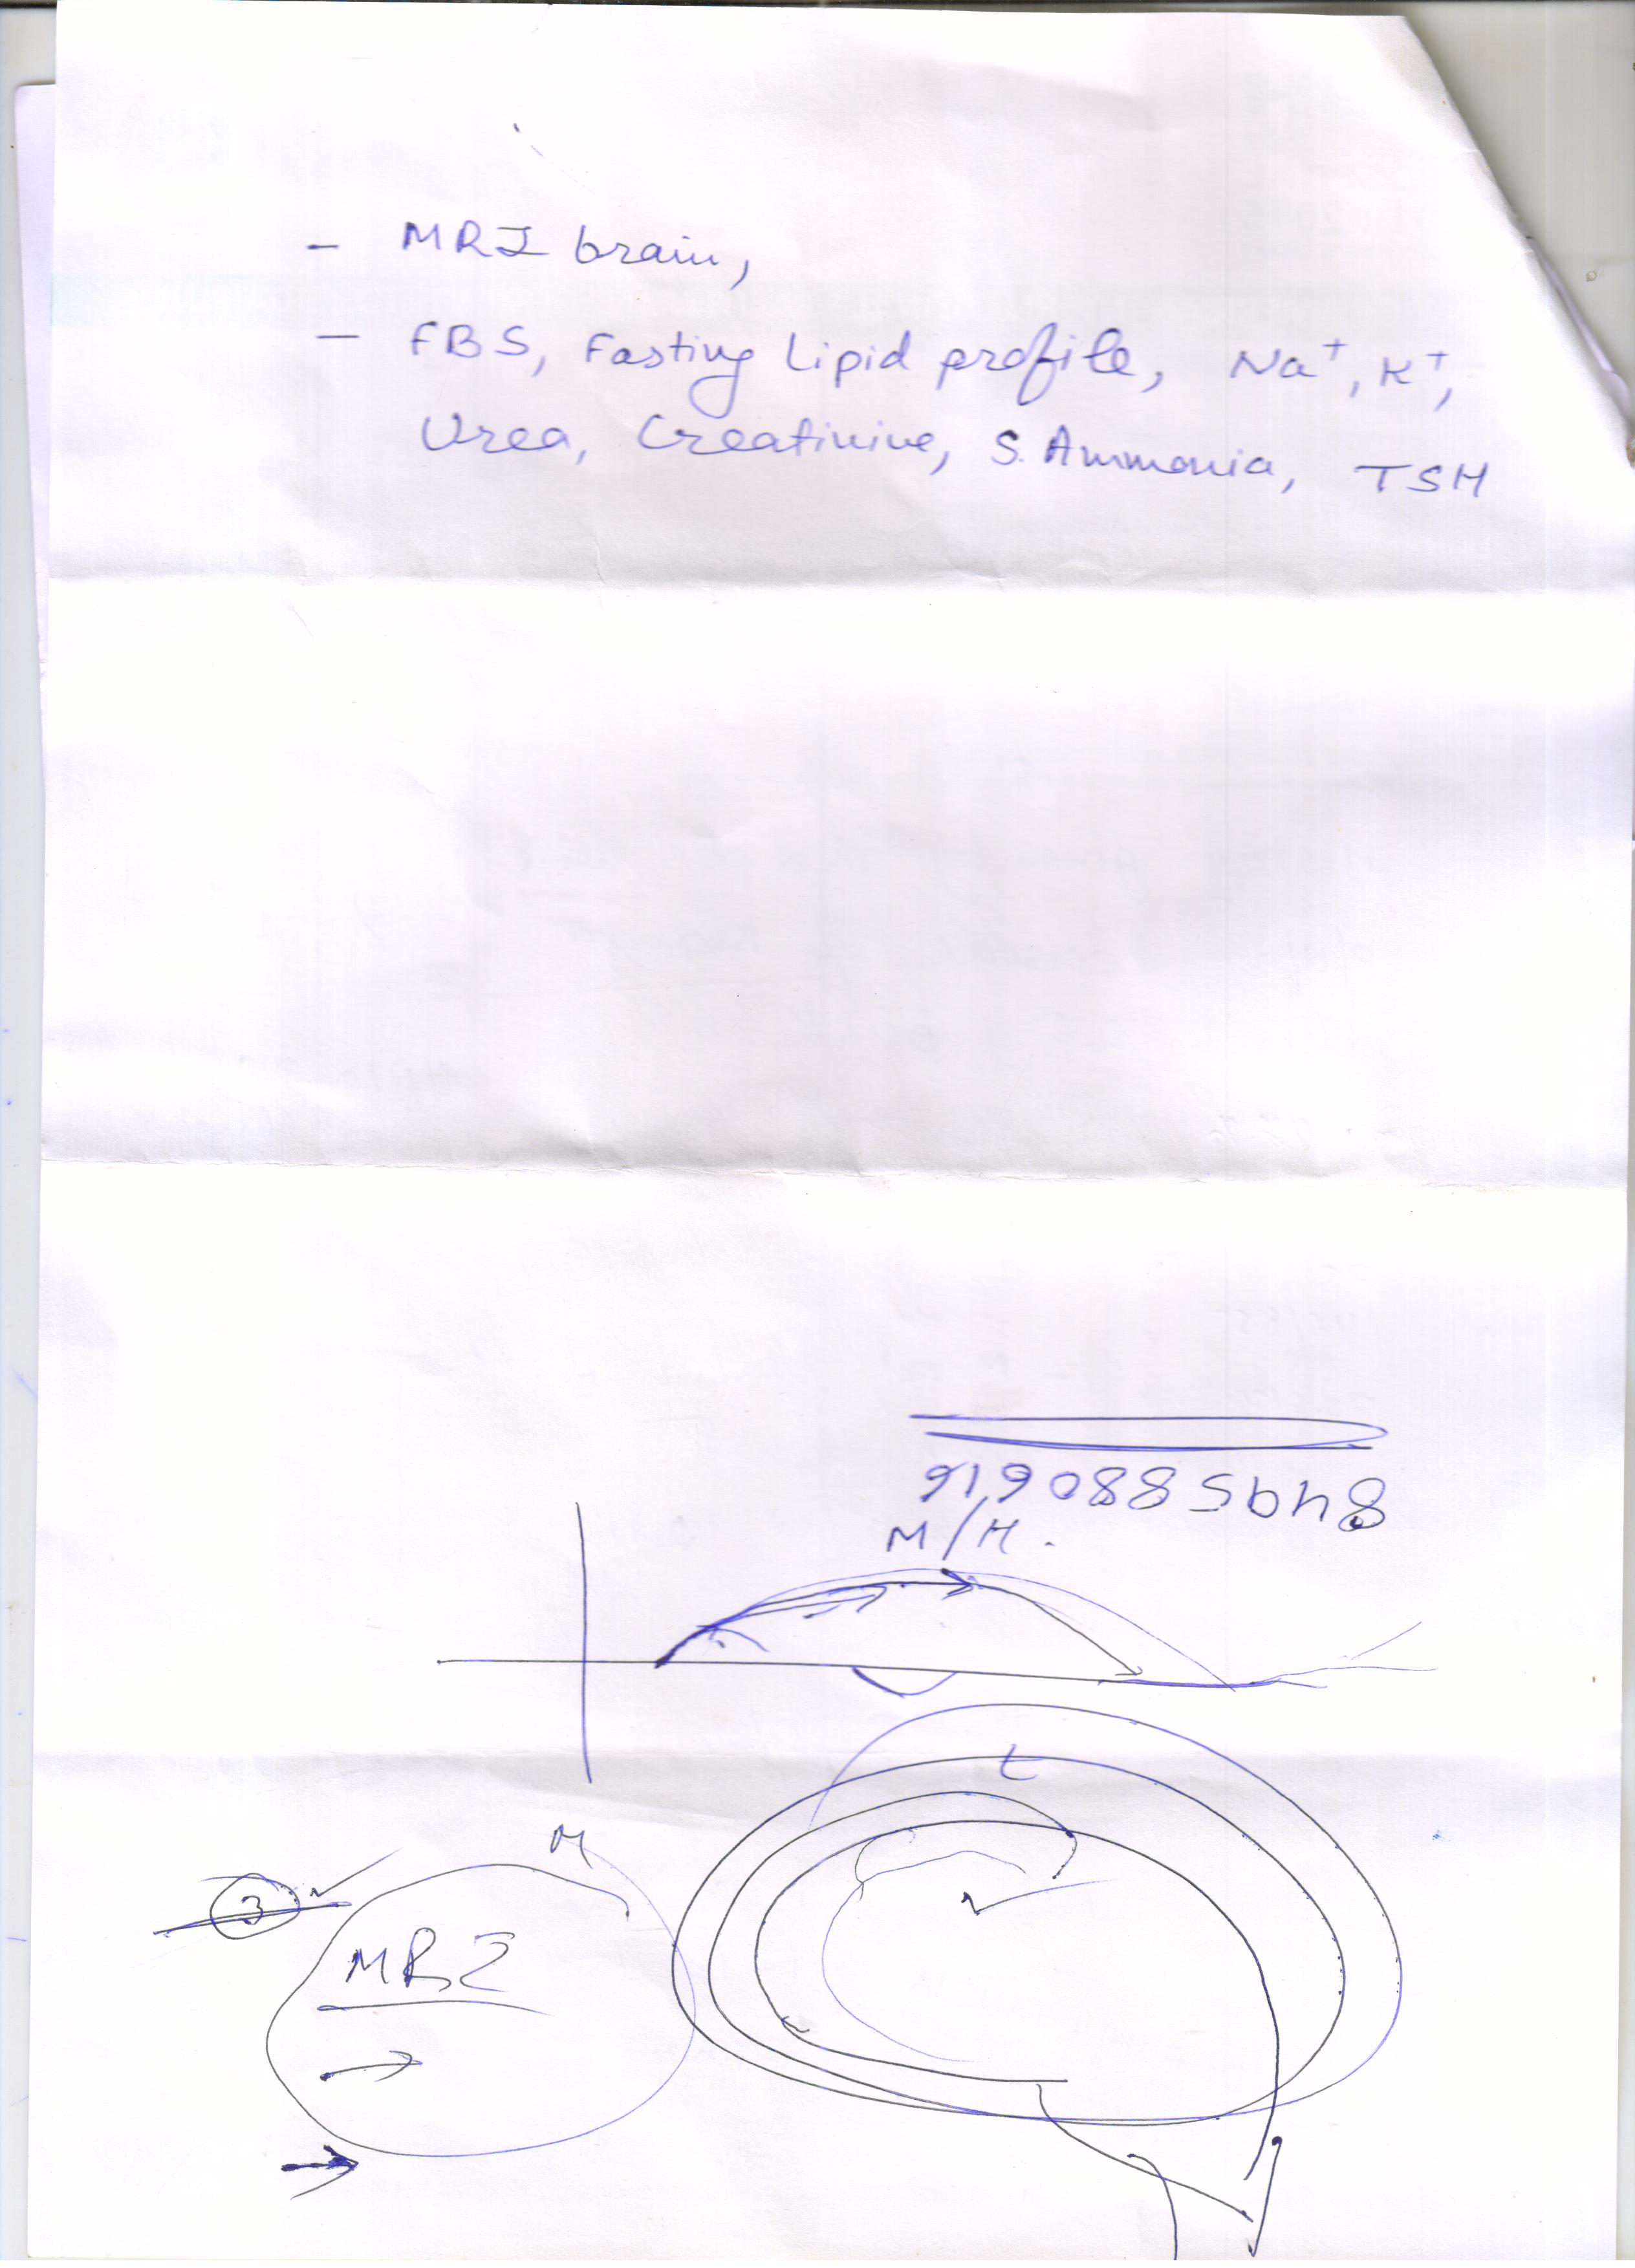 - MRI brain,
- FBS, Fasting Lipid profile, Na⁺, K⁺,
Urea, Creatinine, S. Ammonia, TSH
M/H.
t
M
3
MRI